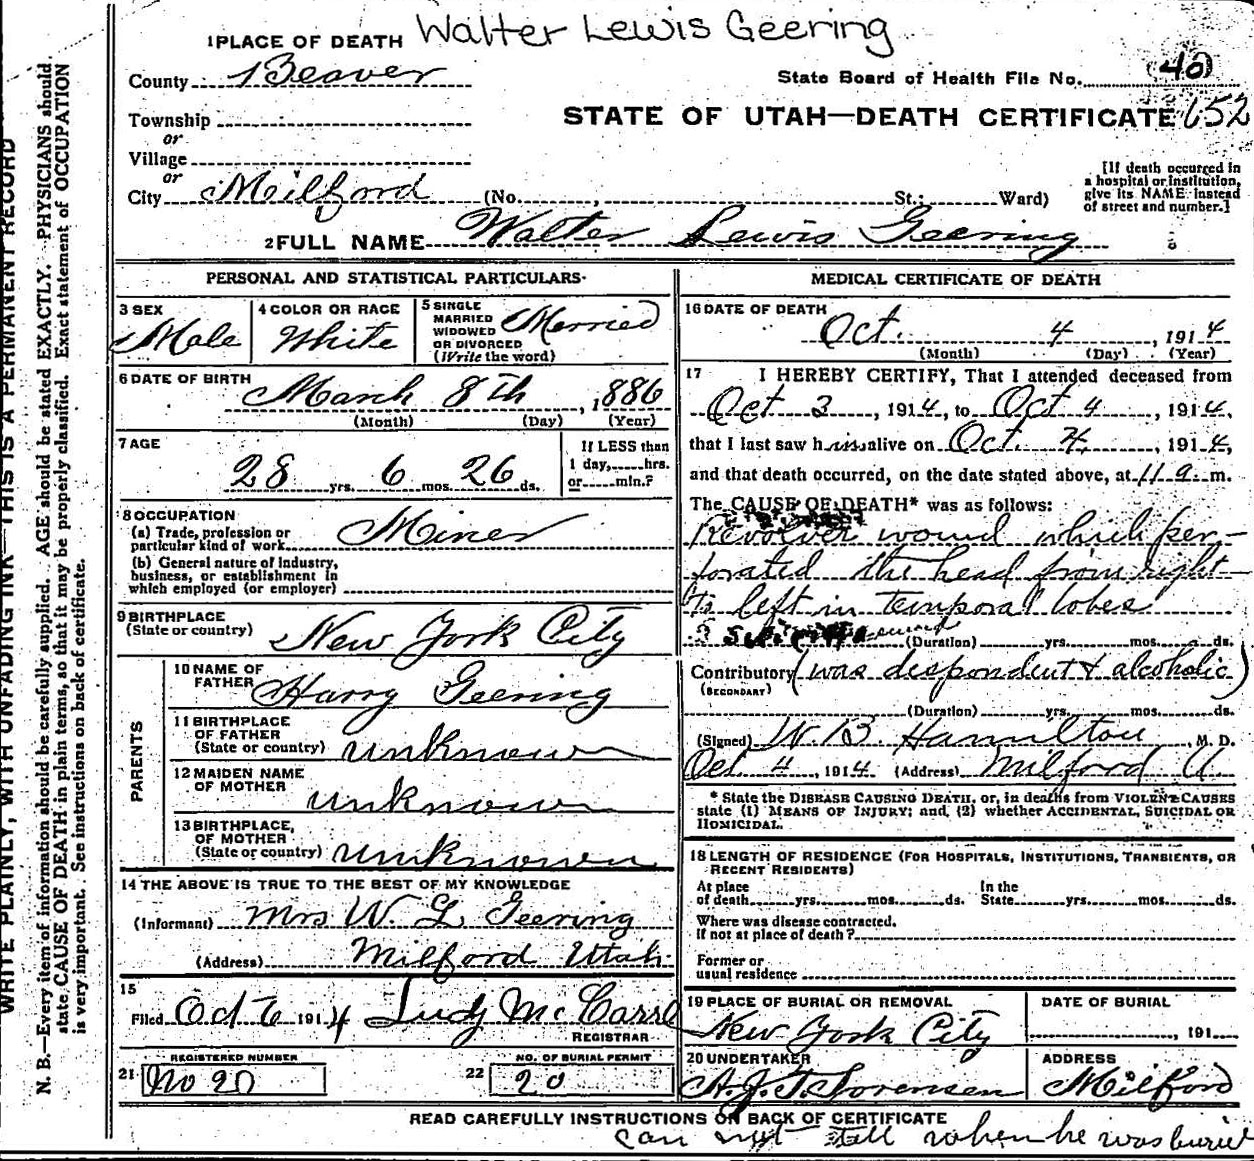 Walter Lewis Geering
1 PLACE OF DEATH
County Beaver
State Board of Health File No. 40
STATE OF UTAH—DEATH CERTIFICATE 652
Township
or
Village
or
City Milford (No. , St.; Ward)
[If death occurred in
a hospital or institution,
give its NAME instead
of street and number.]
2 FULL NAME Walter Lewis Geering
PERSONAL AND STATISTICAL PARTICULARS
3 SEX
Male
4 COLOR OR RACE
White
5 SINGLE
MARRIED
WIDOWED
OR DIVORCED
(Write the word)
Married
6 DATE OF BIRTH
March 8th, 1886
(Month) (Day) (Year)
7 AGE
28 yrs. 6 mos. 26 ds.
If LESS than
1 day, hrs.
or min.?
8 OCCUPATION
(a) Trade, profession or
particular kind of work Miner
(b) General nature of Industry,
business, or establishment in
which employed (or employer)
9 BIRTHPLACE
(State or country) New York City
PARENTS
10 NAME OF
FATHER Harry Geering
11 BIRTHPLACE
OF FATHER
(State or country) unknown
12 MAIDEN NAME
OF MOTHER unknown
13 BIRTHPLACE,
OF MOTHER
(State or country) unknown
14 THE ABOVE IS TRUE TO THE BEST OF MY KNOWLEDGE
(Informant) Mrs W. L Geering
(Address) Milford Utah
15
Filed Oct 6 1914 Judy McCarre
REGISTRAR
21 REGISTERED NUMBER
No 20
22 NO. OF BURIAL PERMIT
20
MEDICAL CERTIFICATE OF DEATH
16 DATE OF DEATH
Oct. 4, 1914
(Month) (Day) (Year)
17 I HEREBY CERTIFY, That I attended deceased from
Oct 3, 1914, to Oct 4, 1914,
that I last saw him alive on Oct. 4, 1914,
and that death occurred, on the date stated above, at 11 a. m.
The CAUSE OF DEATH* was as follows:
Revolver wound which per-
forated the head from right
to left in temporal lobes
(Duration) yrs. mos. ds.
Contributory (was despondent & alcoholic)
(SECONDARY)
(Duration) yrs. mos. ds.
(Signed) W. B. Hamilton, M. D.
Oct 4, 1914 (Address) Milford U.
* State the DISEASE CAUSING DEATH, or, in deaths from VIOLENT CAUSES
state (1) MEANS OF INJURY; and, (2) whether ACCIDENTAL, SUICIDAL OR
HOMICIDAL.
18 LENGTH OF RESIDENCE (FOR HOSPITALS, INSTITUTIONS, TRANSIENTS, OR
RECENT RESIDENTS)
At place
of death yrs. mos. ds.
In the
State yrs. mos. ds.
Where was disease contracted.
If not at place of death?
Former or
usual residence
19 PLACE OF BURIAL OR REMOVAL
New York City
DATE OF BURIAL
, 191
20 UNDERTAKER
A.J.T. Sorensen
ADDRESS
Milford
READ CAREFULLY INSTRUCTIONS ON BACK OF CERTIFICATE
can not tell when he was buried
WRITE PLAINLY, WITH UNFADING INK—THIS IS A PERMANENT RECORD
N. B.—Every item of information should be carefully supplied. AGE should be stated EXACTLY. PHYSICIANS should
state CAUSE OF DEATH in plain terms, so that it may be properly classified. Exact statement of OCCUPATION
is very important. See instructions on back of certificate.